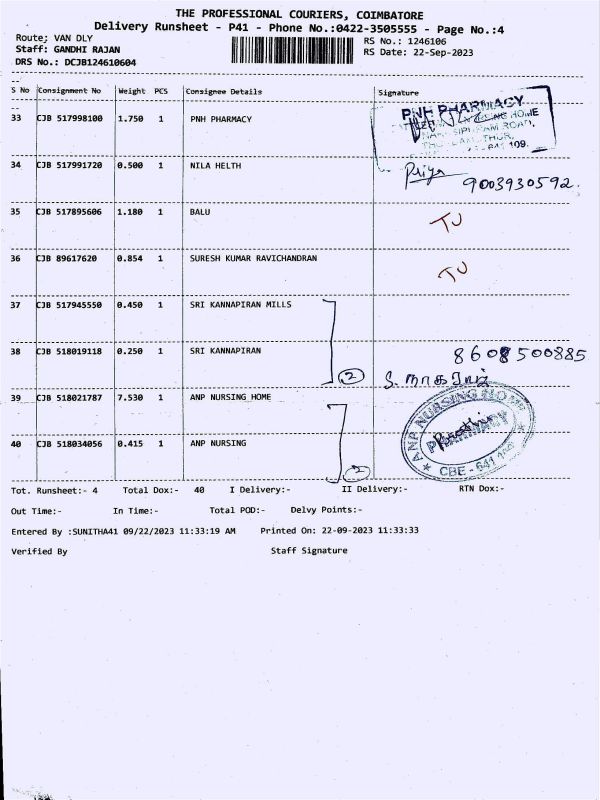 THE PROFESSIONAL COURIERS, COIMBATORE
Delivery Runsheet - P41 - Phone No.:0422-3505555 - Page No.:4
Route; VAN DLY
RS No.: 1246106
Staff: GANDHI RAJAN
RS Date: 22-Sep-2023
DRS No.: DCJB124610604
S No Consignment No Weight PCS Consignee Details Signature
33 CJB 517998100 1.750 1 PNH PHARMACY
PNH PHARMACY
NURSING HOME
ROAD,
109.
34 CJB 517991720 0.500 1 NILA HELTH Priya 9003930592.
35 CJB 517895606 1.180 1 BALU TJ
36 CJB 89617620 0.854 1 SURESH KUMAR RAVICHANDRAN TJ
37 CJB 517945550 0.450 1 SRI KANNAPIRAN MILLS
38 CJB 518019118 0.250 1 SRI KANNAPIRAN 8608500885
2 S. நாகராஜ்
39 CJB 518021787 7.530 1 ANP NURSING HOME
ANP NURSING HOME
PHARMACY
CBE - 641
40 CJB 518034056 0.415 1 ANP NURSING
2
Tot. Runsheet:- 4 Total Dox:- 40 I Delivery:- II Delivery:- RTN Dox:-
Out Time:- In Time:- Total POD:- Delvy Points:-
Entered By :SUNITHA41 09/22/2023 11:33:19 AM Printed On: 22-09-2023 11:33:33
Verified By Staff Signature